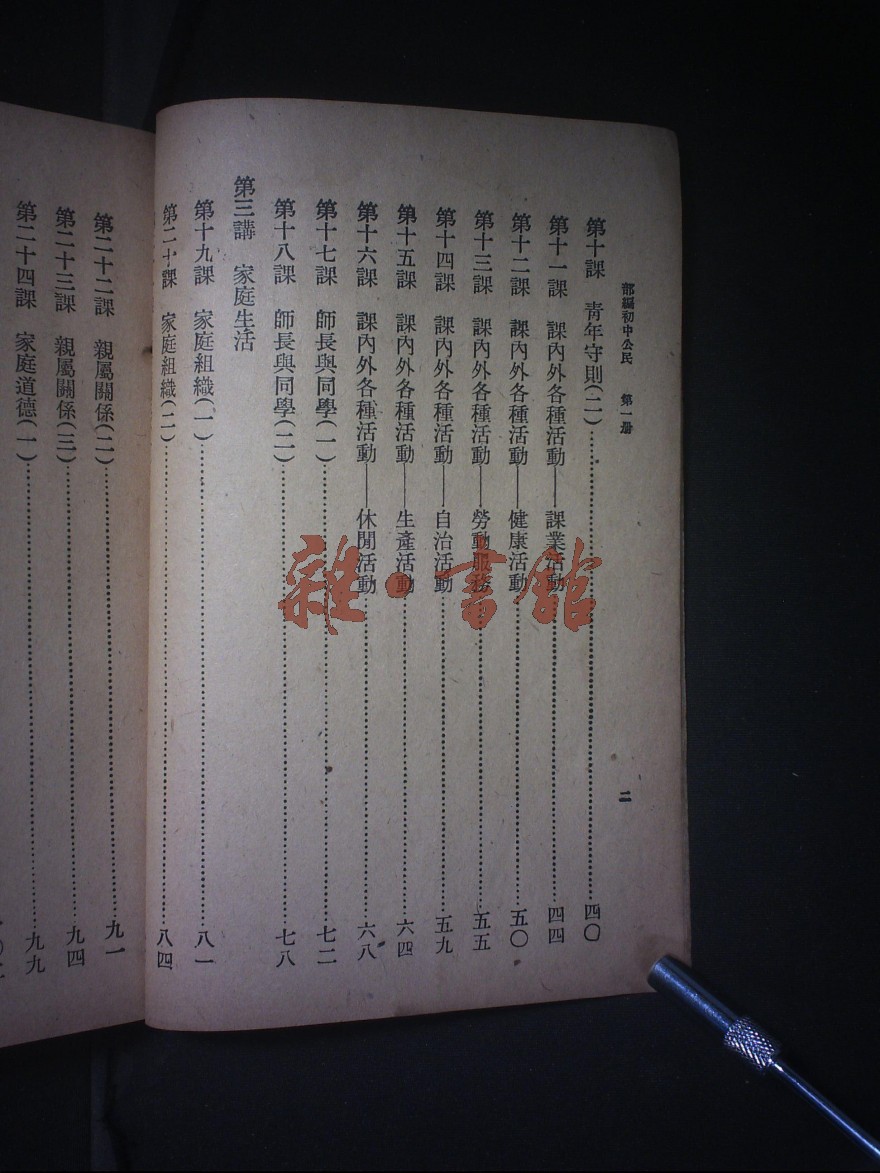 部編初中公民　第一册
二
第十課　青年守則(二)……四〇
第十一課　課內外各種活動——課業活動……四四
第十二課　課內外各種活動——健康活動……五〇
第十三課　課內外各種活動——勞動服務……五五
第十四課　課內外各種活動——自治活動……五九
第十五課　課內外各種活動——生產活動……六四
第十六課　課內外各種活動——休閒活動……六八
第十七課　師長與同學(一)……七二
第十八課　師長與同學(二)……七八
第三講　家庭生活
第十九課　家庭組織(一)……八一
第二十課　家庭組織(二)……八四
第二十二課　親屬關係(二)……九一
第二十三課　親屬關係(三)……九四
第二十四課　家庭道德(一)……九九
雜·書館